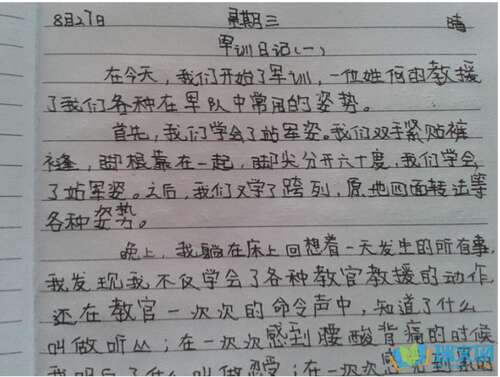 8月27日 星期三 晴
军训日记(一)
在今天,我们开始了军训,一位姓何的教援
了我们各种在军队中常用的了姿势。
首先,我们学会了站军姿。我们双手紧贴裤
缝,脚根靠在一起,脚尖分开六十度,我们学会
了站军姿。之后,我们又学了跨列,原地四面转法等
各种姿势。
晚上,我躺在床上回想着一天发生的所有事,
我发现我不仅学会了各种教官教援的动作,
还在教官一次次的命令声中,知道了什么
叫做听从;在一次次感到腰酸背痛的时候
我明白了什么叫做忍受;在一次次感到